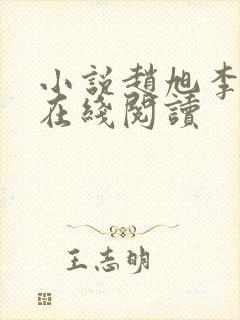 小説趙旭李
在綫閱讀
王志明